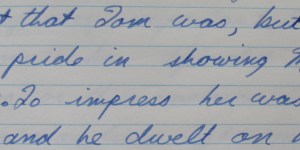 that Tom was, but
pride in showing
. To impress her was
and he dwelt on